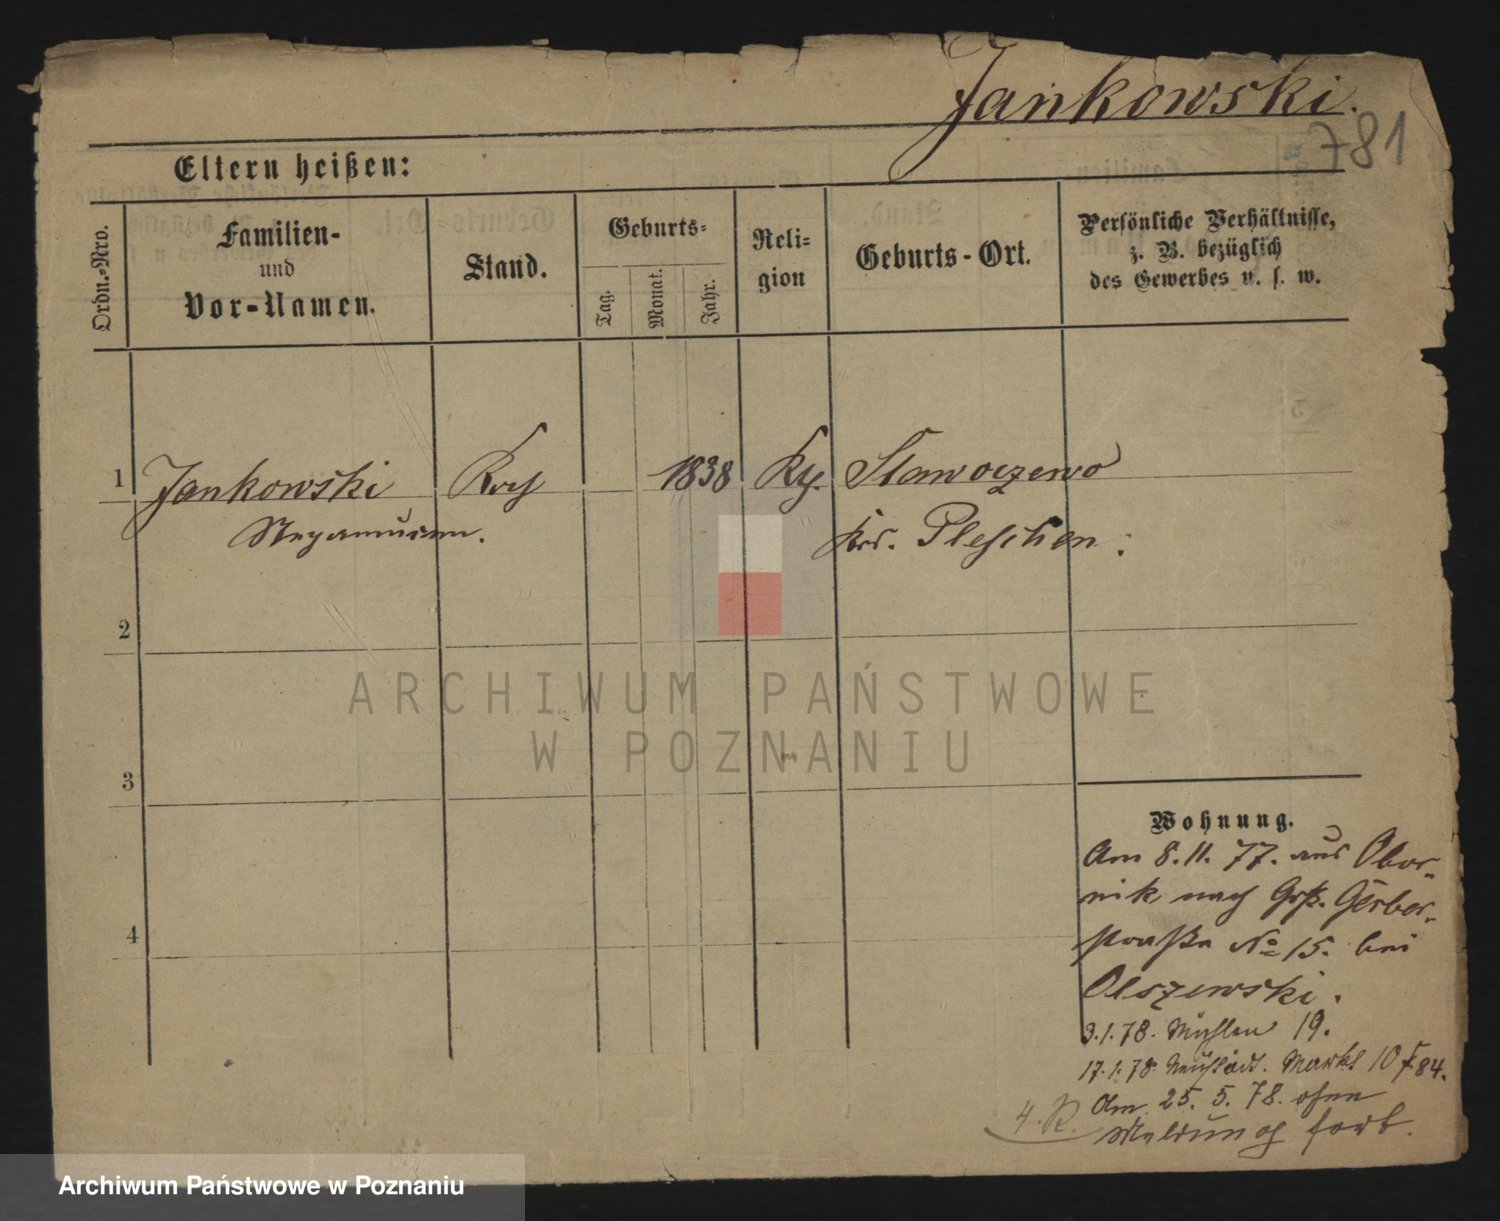 Jankowski.
781
Eltern heißen:
Ordn.-Nro.
Familien-
und
Vor-Namen.
Stand.
Geburts-
Tag.
Monat.
Jahr.
Reli-
gion
Geburts-Ort.
Persönliche Verhältnisse,
z. B. bezüglich
des Gewerbes u. s. w.
1 Jankowski Koch 1838 Slawoszewo
Nepomucen. Krs. Pleschen.
2
ARCHIWUM PAŃSTWOWE
W POZNANIU
3
Wohnung.
Am 8.11.77. aus Obor-
nik nach Grß. Gerber-
straße No 15. bei
4
Olszewski.
9.1.78. Mühlen 19.
17.1.78. Neustädt. Markt 10
Am 25.5.78. ohne
4. R.
Meldung fort.
Archiwum Państwowe w Poznaniu